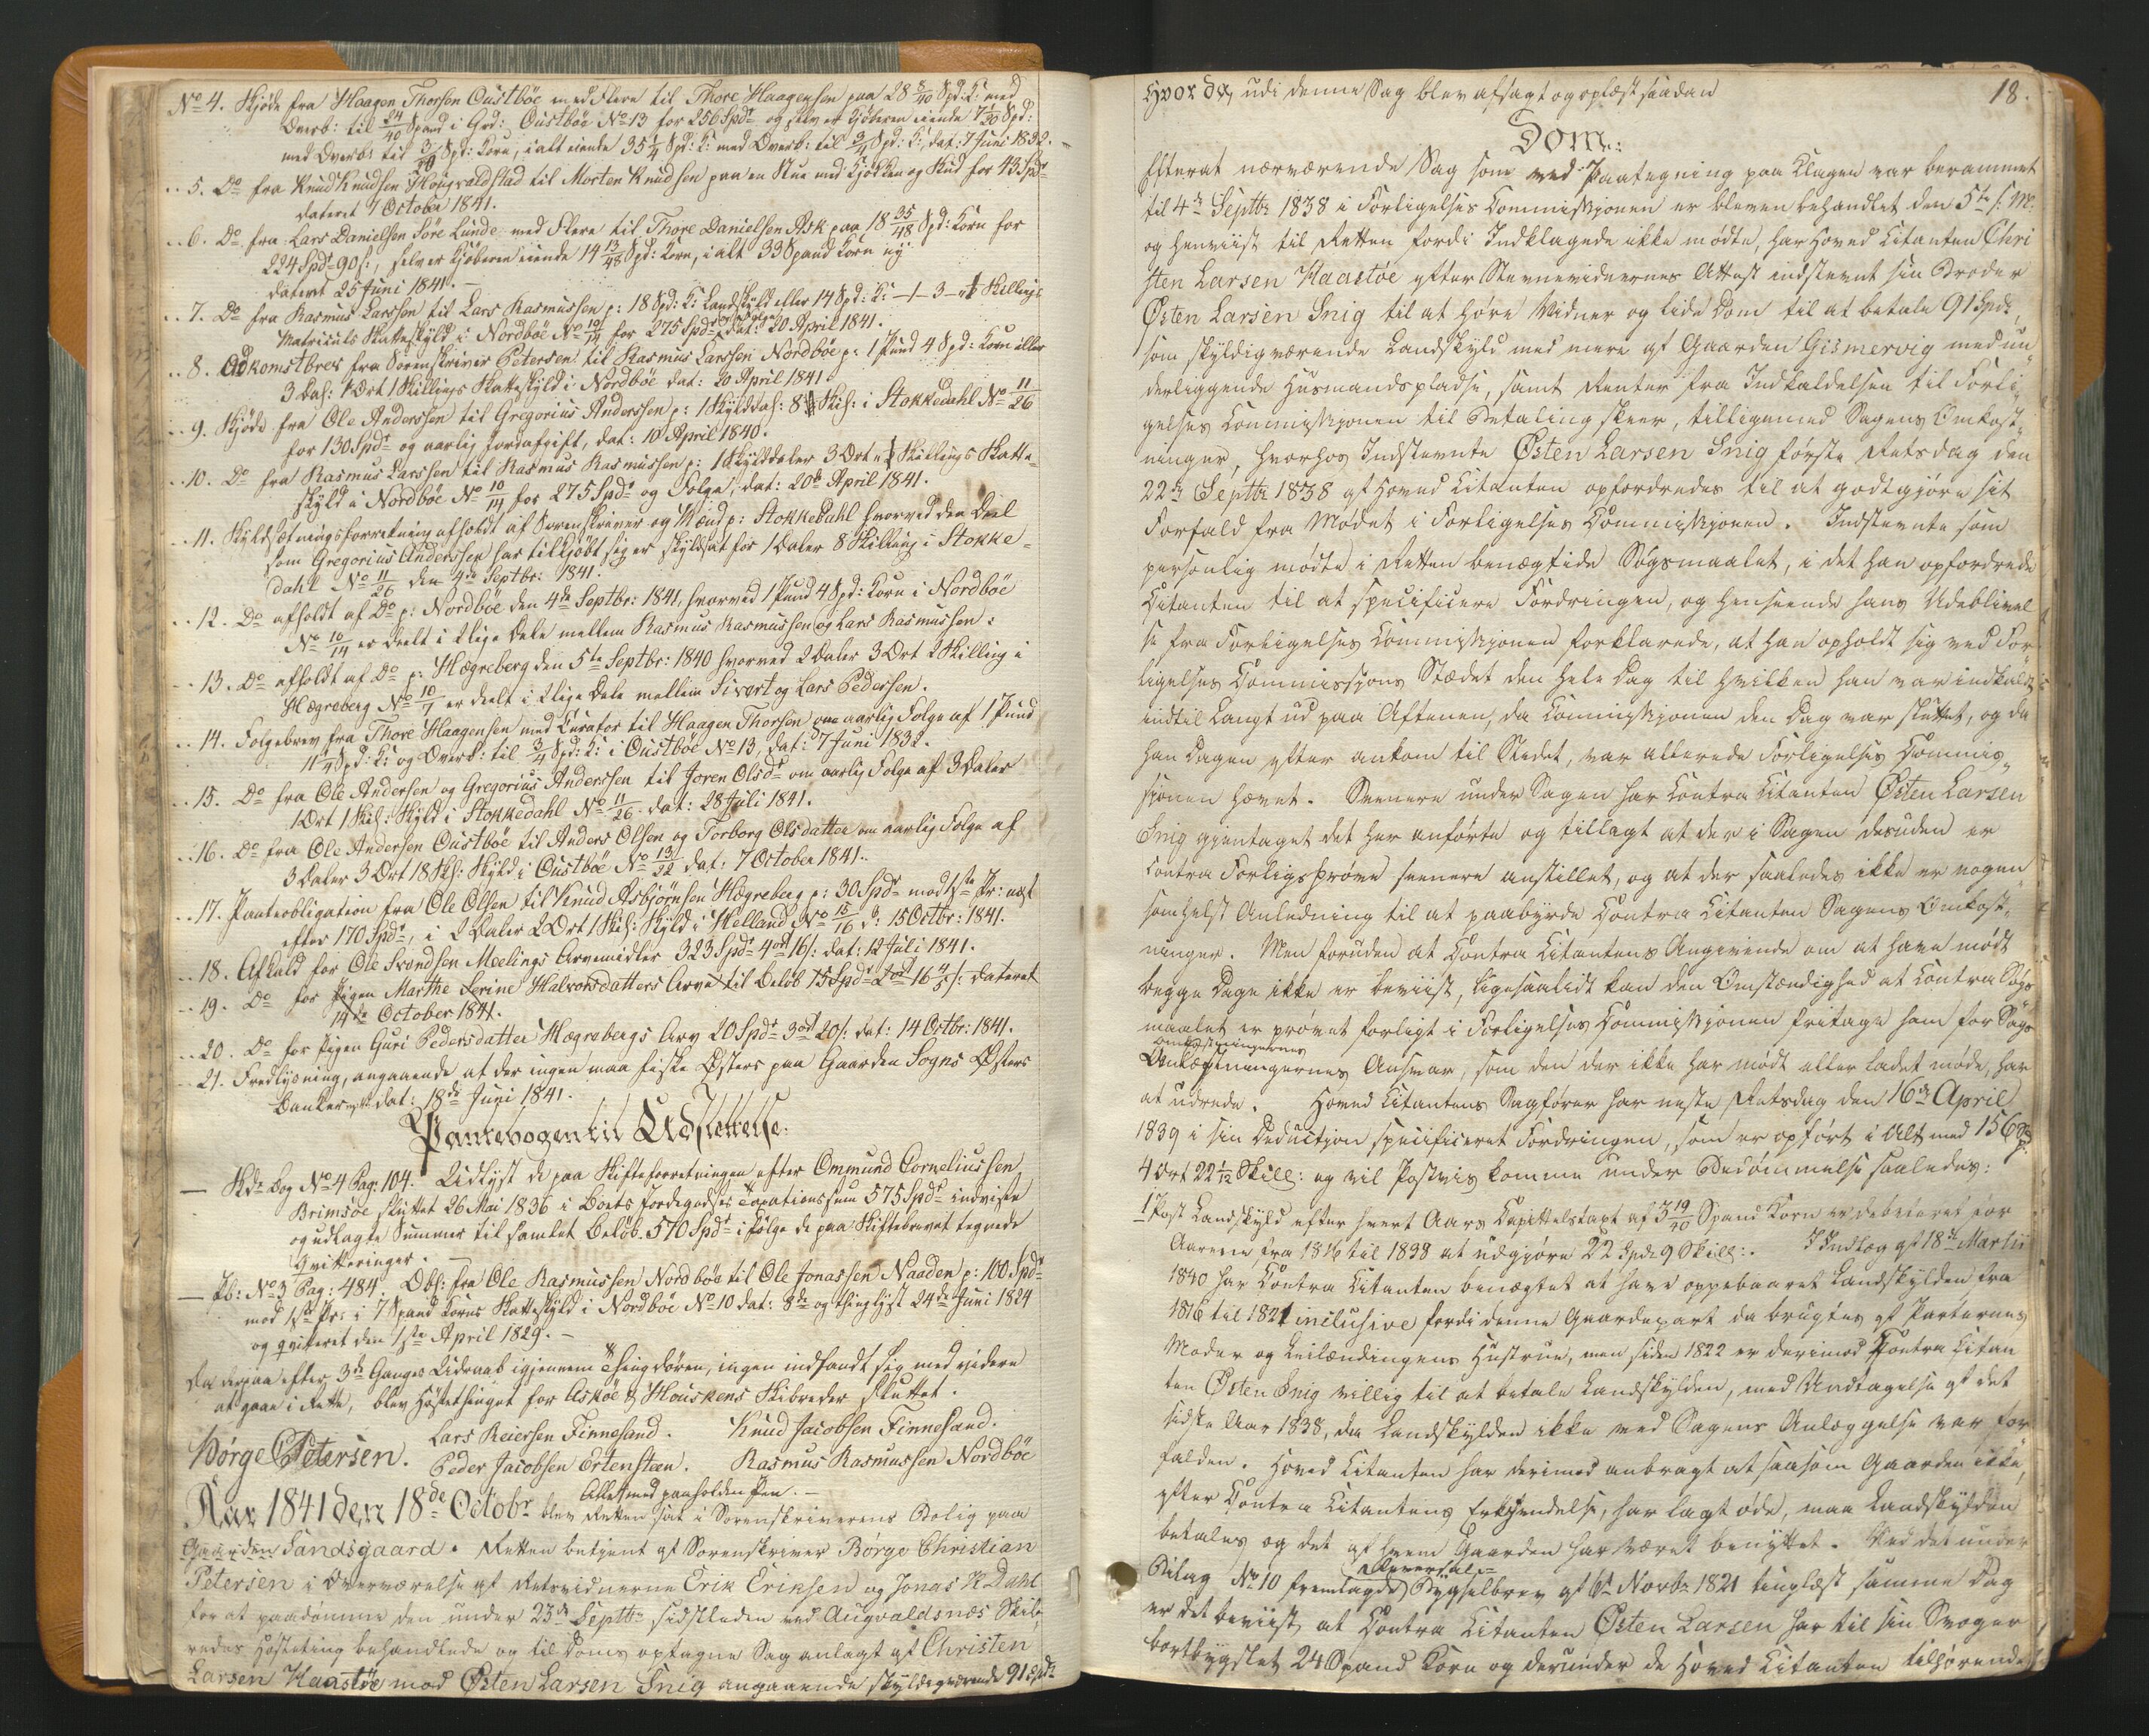 No 4. Skjøde fra Haagen Thorsen Oustbøe med Flere til Thore Haagensen paa 28 5/40 Spd: K: med
Overb: til 24/40 Spand i Grd: Oustbøe No 13 for 256 Spdr og selv er Kjøberen eiende 7 Spd:
med Overb: til 3/20 Spd: Korn, i alt eiende 35 1/4 Spd: K: med Overb: til 3/4 Spd: K:, dat: 7 Juni 1832.
5. Do fra Knud Knudsen Hougvaldstad til Morten Knudsen paa en Stue med Kjøkken og Skud for 43 Spdr
dateret 7 October 1841.
6. Do fra Lars Danielsen Søre Lunde med Flere til Thore Danielsen Ask paa 18 35/48 Spd: Korn for
224 Spdr 90 s:, selv er Kjøberen eiende 14 13/48 Spd: Korn, i alt 33 Spand Korn ny
dateret 25 Juni 1841.
7. Do fra Rasmus Larssen til Lars Rasmussen p: 18 Spd: K: Landskyld eller 14 Spd: K: - 1 - 3 - Skillings
Matriculs Skatteskyld i Nordbøe No 10/14 for 275 Spdr og Folge dat: 20 April 1841.
8. Adkomstbrev fra Sorenskriver Petersen til Rasmus Larssen Nordbøe p: 1 Pund 4 Spd: Korn eller
3 Dal: 1 Ort 1 Skillings Skatteskyld i Nordbøe dat: 20 April 1841.
9. Skjøde fra Ole Anderssen til Gregorius Anderssen p: 1 Skylddal: 8 Skil: i Stokkedahl No 11/26
for 130 Spdr og aarlig Jordafgift, dat: 10 April 1840.
10. Do fra Rasmus Larssen til Rasmus Rasmussen p: 1 Skylddaler 3 Ort Skillings Skatte-
skyld i Nordbøe No 10/14 for 275 Spdr og Folge, dat: 20de April 1841.
11. Skyldsætningsforretning afholdt af Sorenskriver og Mænd p: Stokkedahl hvorved den Deel
som Gregorius Anderssen har tilkjøbt sig er skyldsat for 1 Daler 8 Skilling i Stokke-
dahl No 11/26 den 4de Septbr: 1841.
12. Do afholdt af Do p: Nordbøe den 4de Septbr: 1841, hvorved 1 Pund 4 Spd: Korn i Nordbøe
No 10/14 er deelt i 2 lige Dele mellem Rasmus Rasmussen og Lars Rasmussen.
13. Do afholdt af Do p: Hægreberg den 5te Septbr: 1840 hvorved 2 Daler 3 Ort 2 Skilling i
Hægreberg No 10/7 er deelt i 2 lige Dele mellem Sivert og Lars Pedersen.
14. Folgebrev fra Thore Haagensen med Curator til Haagen Thorsen om aarlig Folge af 1 Pund
11 1/4 Spd: K: og Overb: til 3/4 Spd: K: i Oustbøe No 13, dat: 7 Juni 1832.
15. Do fra Ole Andersen og Gregorius Anderssen til Joren Olsdr om aarlig Folge af 3 Daler
1 Ort 1 Skil: Skyld i Stokkedahl No 11/26 dat: 28 Juli 1841.
16. Do fra Ole Andersen Oustbøe til Anders Olsen og Torborg Olsdatter om aarlig Folge af
3 Daler 3 Ort 18 Sk: Skyld i Oustbøe No 13/22 dat: 7 October 1841.
17. Panteobligation fra Ole Olsen til Knud Asbjørnsen Hægreberg p: 30 Spdr mod 1ste Pr: næst
efter 170 Spdr, i 2 Daler 2 Ort 1 Skil: Skyld i Helland No 15/16 d: 15 Octbr: 1841.
18. Afkald for Ole Svendsen Meelings Arvemidler 323 Spdr 4 ort 16 s: dat: 12 Juli 1841.
19. Do for Pigen Marthe Serine Halvorsdatters Arv til Beløb 15 Spdr 2 ort 16 4/5 s: dateret
14de October 1841.
20. Do for Pigen Guri Pedersdatter Hægrebergs Arv 20 Spdr 3 ort 20 s: dat: 14 Octbr: 1841.
21. Fredlysning, angaaende at der ingen maa fiske Østers paa Gaarden Sogns Østers
Banker dat: 18de Juni 1841.
Pantebogen til Udslettelse.
Skde Bog No 4 Pag: 104. Udlyst de paa Skifteforretningen efter Ommund Corneliussen
Brimsøe sluttet 26 Mai 1836 i Boets Jordegodses Taxationssum 575 Spdr indviste
og udlagte Summer til samlet Beløb 570 Spdr ifølge de paa Skiftebrevet tegnede
Qvitteringer.
Pb: No 3 Pag: 484. Obl: fra Ole Rasmussen Nordbøe til Ole Jonassen Naaden p: 100 Spdr
mod 1ste Pr: i 7 Spand Korns Skatteskyld i Nordbøe No 10 dat: 8de og thinglyst 24de Juni 1824
og qvitteret den 1ste April 1829.
Da derpaa efter 3de Ganges Udraab igjennem Thingdøren, ingen indfandt sig med videre
at gaae i Rette, blev Høstethinget for Askøe & Houskens Skibreder sluttet.
Børge C Petersen. Lars Reiersen Finnesand. Knud Jacobsen Finnesand.
Peder Jacobsen Ertensteen. Rasmus Rasmussen Nordbøe
Alle med paaholden Pen.
Aar 1841 den 18de Octobr blev Retten sat i Sorenskriverens Bolig paa
Gaarden Sandsgaard. Retten betjent af Sorenskriver Børge Christian
Petersen i Overværelse af Retsvidnerne Erik Eriksen og Jonas K Dahl
for at paadømme den under 23de Septbr sidstleden ved Augvaldsnæs Skib-
redes Høsteting behandlede og til Doms optagne Sag anlagt af Christen
Larsen Haastøe mod Østen Larsen Snig angaaende skyldigværende 91 Spdr
18.
Hvorda, udi denne Sag blev afsagt og oplæst saadan
Dom:
Efterat nærværende Sag som ved Paategning paa Klagen var berammet
til 4de Septbr 1838 i Forligelses Commissjonen er bleven behandlet den 5te s. M.
og henviist til Retten fordi Indklagede ikke mødte, har Hoved Citanten Chri
sten Larsen Haastøe efter Stevnevidnernes Attest indstevnt sin Broder
Østen Larsen Snig til at høre Vidner og lide Dom til at betale 91 Spdr,
som skyldigværende Landskyld med mere af Gaarden Gismervig med un
derliggende Husmandspladse, samt Renter fra Indkaldelsen til Forli
gelses Commissjonen til Betaling skeer, tilligemed Sagens Omkost
ninger, hvorhos Indstevnte Østen Larsen Snig første Retsdag den
22de Septbr 1838 af Hoved Citanten opfordredes til at godtgjøre sit
Forfald fra Mødet i Forligelses Commissjonen. Indstevnte som
personlig mødte i Retten benægtede Søgsmaalet, i det han opfordrede
Citanten til at specificere Fordringen, og henseende hans Udeblivel
se fra Forligelses Commissjonen forklarede, at han opholdt sig ved For
ligelses Commissjons Stædet den hele Dag til hvilken han var indkaldt
indtil Langt ud paa Aftenen, da Commissjonen den Dag var sluttet, og da
han Dagen efter ankom til Stedet, var allerede Forligelses Commis
sjonen hævet. Seenere under Sagen har Contra Citanten Østen Larsen
Snig gjentaget det her anførte og tillagt at der i Sagen desuden er
Contra Forligsprøve seenere anstillet, og at der saaledes ikke er nogen
somhelst Anledning til at paabyrde Contra Citanten Sagens Omkost
ninger. Men foruden at Contra Citantens Angivende om at have mødt
begge Dage ikke er beviist, ligesaalidt kan den Omstændighed at Contra Søgs
maalet er prøvet forligt i Forligelses Commissjonen fritage ham for Sags
Omkostningernes
Omkostningernes Ansvar, som den der ikke har mødt eller ladet møde, har
at udrede. Hoved Citantens Sagfører har neste Retsdag den 16de April
1839 i sin Deductjon specificeret Fordringen, som er opført i Alt med 156 Sp.
4 Ort 22 1/12 Skill: og vil Postvis komme under Bedømmelse saaledes:
1 Post Landskyld efter hvert Aars Capittelstaxt af 3 19/20 Spand Korn er debiteret for
Aarene fra 1816 til 1838 at udgjøre 22 Spdr 9 Skill:. I Indlæg af 18de Martii
1840 har Contra Citanten benægtet at have oppebaaret Landskylden fra
1816 til 1821 inclusive fordi denne Gaardepart da brugtes af Parternes
Moder og Leilændingens Hustrue, men siden 1822 er derimod Contra Citan
ten Østen Snig villig til at betale Landskylden, med Undtagelse af det
sidste Aar 1838, da Landskylden ikke ved Sagens Anlæggelse var for
falden. Hoved Citanten har derimod anbragt at saasom Gaarden ikke,
efter Contra Citantens Erkjendelse, har lagt øde, maa Landskylden
betales og det af hvem Gaarden har været benyttet. Ved det under
Reversal
Bilag No 10 fremlagde Bygselbrev af 6te Novbr 1821 tinglæst samme Dag
er det beviist, at Contra Citanten Østen Larsen har til sin Svoger
bortbygslet 24 Spand Korn og derunder de Hoved Citanten tilhørende